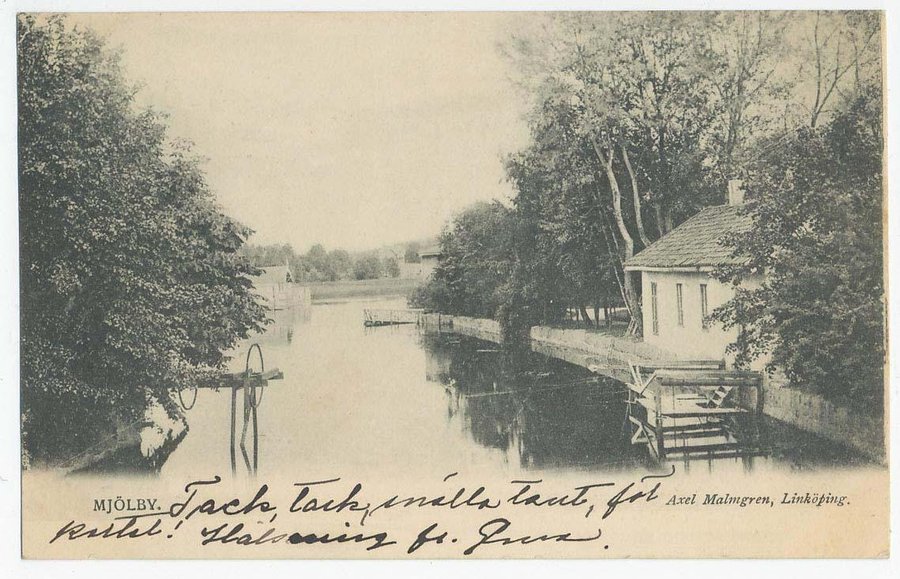 MJÖLBY.
Axel Malmgren, Linköping.
Tack, tack, snälla tant, för
kortet! Hälsning fr.